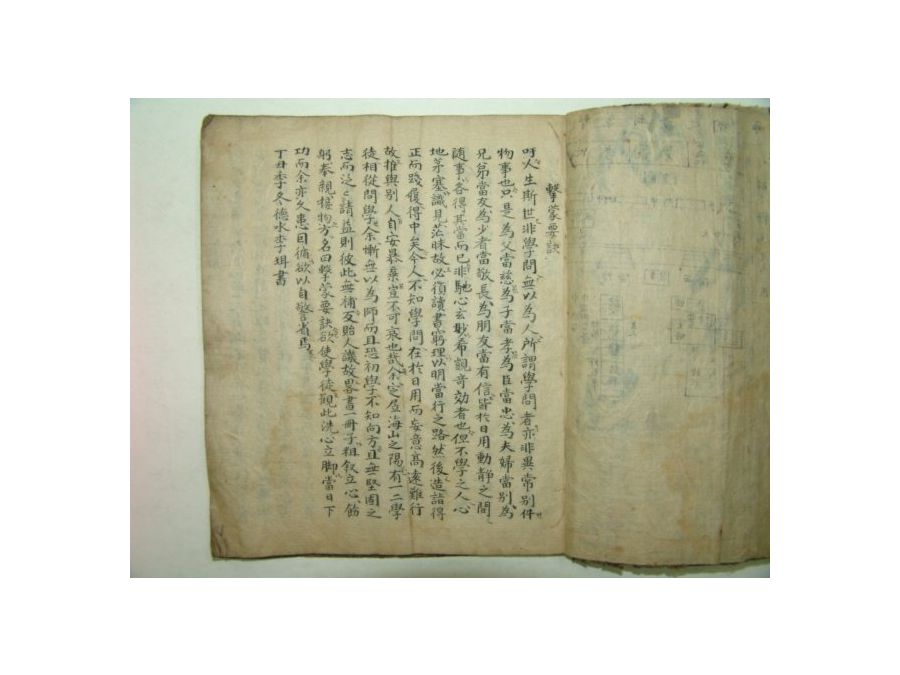 擊蒙要訣
吁人生斯世非學問無以為人所謂學問者亦非異常別件
物事也只是為父當慈為子當孝為臣當忠為夫婦當別為
兄弟當友為少者當敬長為朋友當有信皆於日用動靜之間
隨事各得其當而已非馳心玄妙希覬奇効者也但不學之人心
地茅塞識見茫昧故必湏讀書窮理以明當行之路然後造詣得
正而踐履得中矣今人不知學問在於日用而妄意高遠難行
故推與別人自安暴棄豈不可哀也哉余定居海山之陽有一二學
徒相從問學余慚無以為師而且恐初學不知向方且無堅固之
志而泛之請益則彼此無補反貽人譏故畧書一冊子粗叙立心飭
躬奉親接物方名曰擊蒙要訣欲使學徒觀此洗心立脚當日下
功而余亦久患因循欲以自警省焉
丁丑季冬德水李珥書